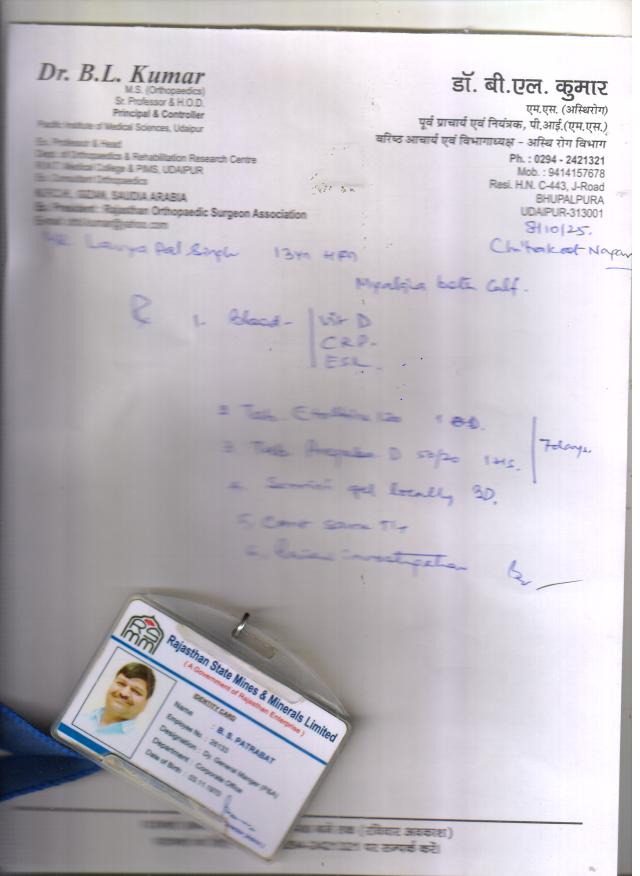 Dr. B.L. Kumar
M.S. (Orthopaedics)
Sr. Professor & H.O.D.
Principal & Controller
Pacific Institute of Medical Sciences, Udaipur
Ex. Professor & Head
Dept. of Orthopaedics & Rehabilitation Research Centre
Medical College & PIMS, UDAIPUR
Ex. Consultant Orthopaedics
SAUDIA ARABIA
Ex. President : Rajasthan Orthopaedic Surgeon Association
डॉ. बी.एल. कुमार
एम.एस. (अस्थिरोग)
पूर्व प्राचार्य एवं नियंत्रक, पी.आई.(एम.एस.)
वरिष्ठ आचार्य एवं विभागाध्यक्ष - अस्थि रोग विभाग
Ph. : 0294 - 2421321
Mob. : 9414157678
Resi. H.N. C-443, J-Road
BHUPALPURA
UDAIPUR-313001
8/10/25.
Pal Singh 13yr
Chitrakoot Nagar
Myalgia both Calf.
1. Blood - Vit D
CRP
ESR
2 Tab. 120 1 OD.
3 Tab D 50/20 1 HS.
7 days
4 gel locally
5. Cont same
6. investigation
RSMM
Rajasthan State Mines & Minerals Limited
( A Government of Rajasthan Enterprise )
IDENTITY CARD
Name : B. S. PATRABAT
Employee No. : 26133
Designation : Dy General Manger (P&A)
Department : Corporate Office
Date of Birth : 03.11.1970
(रविवार अवकाश)
0294-2421321 पर सम्पर्क करें।